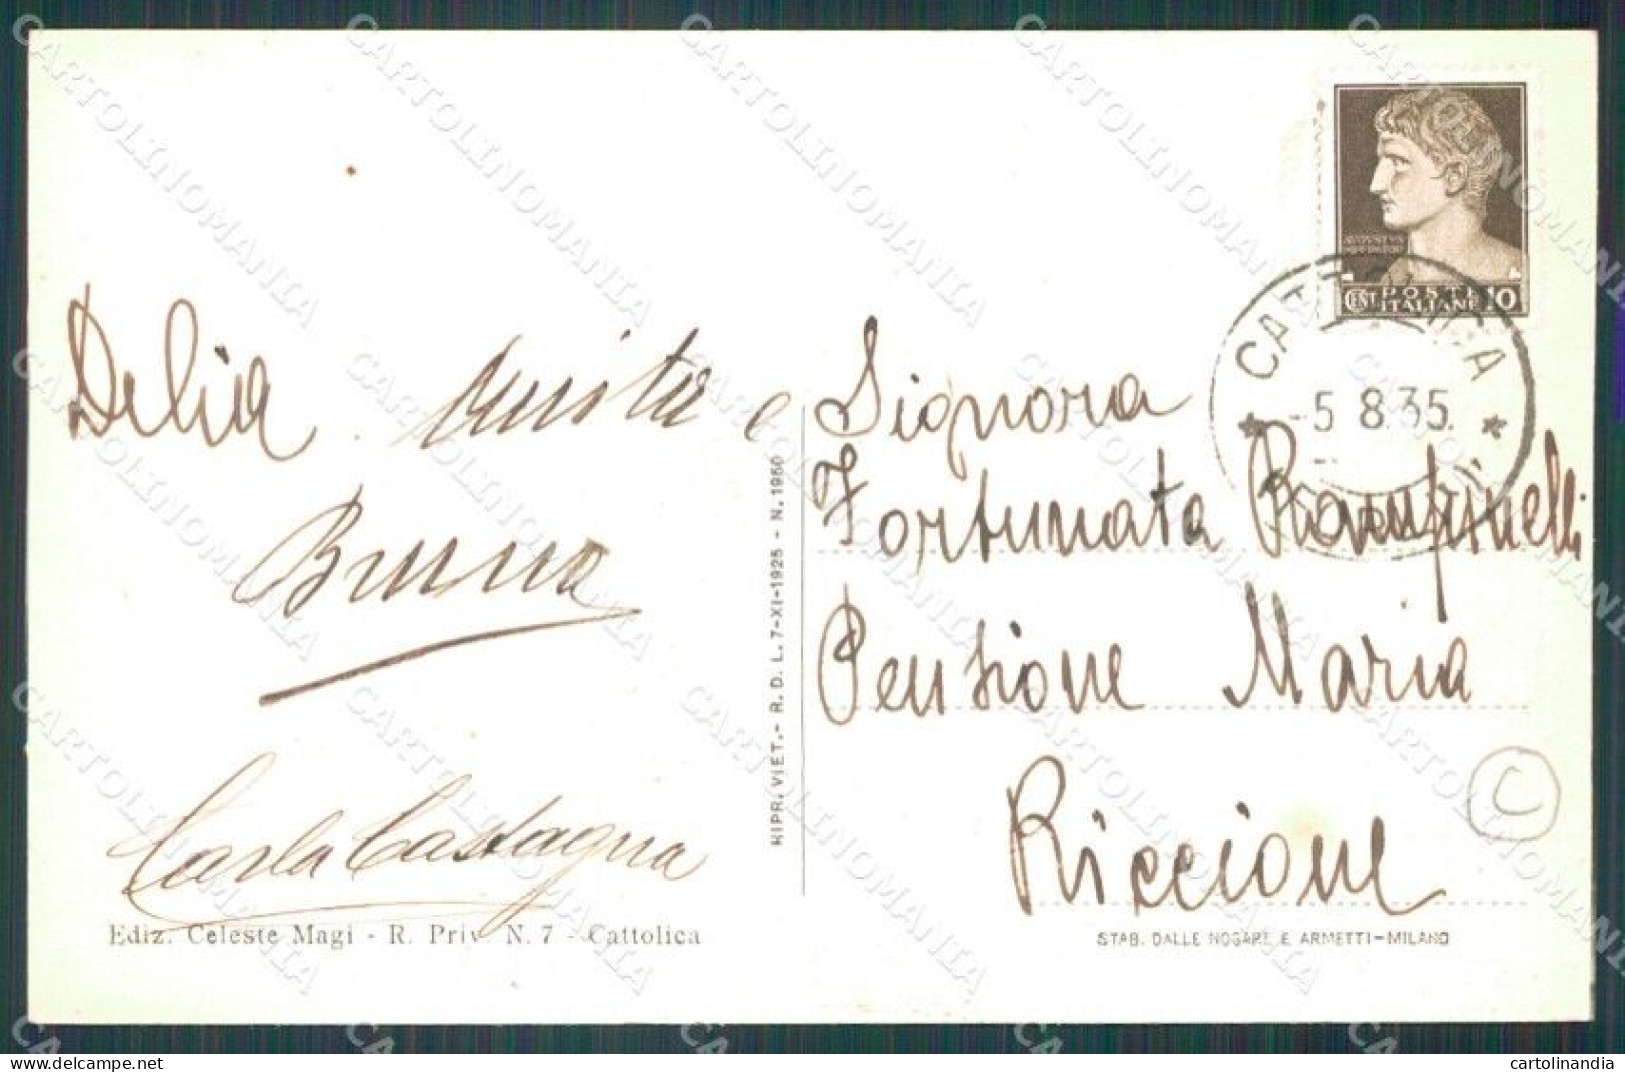 POSTE
ITALIANE
CENT. 10
CATTOLICA
-5.8.35.
Delia
e
Bruna
Carla Castagna
Signora
Fortunata Rampinelli
Pensione Maria
Riccione
C
RIPR. VIET.- R. D. L. 7-XI-1925 - N. 1950
Ediz. Celeste Magi - R. Priv. N. 7 - Cattolica
STAB. DALLE NOGARE E ARMETTI-MILANO
CARTOLINOMANIA
cartolinandia